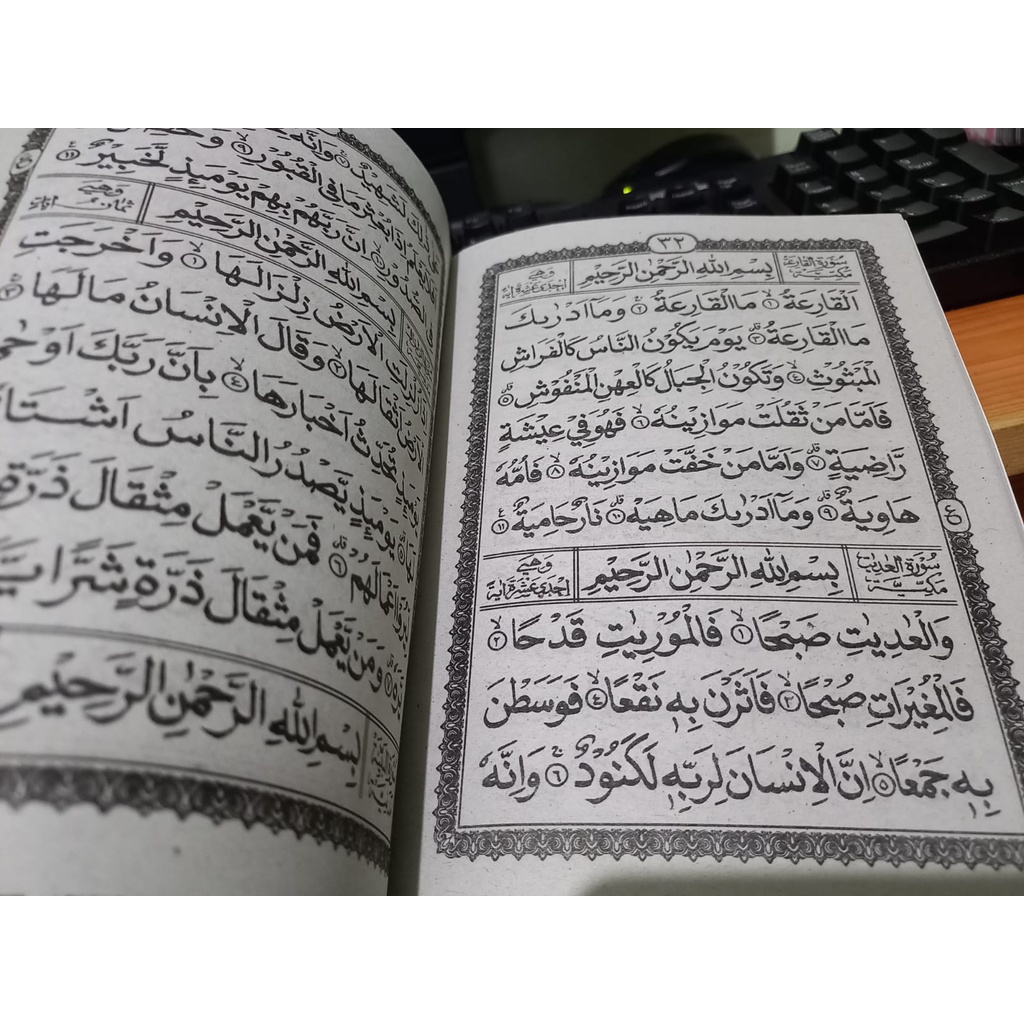 ٣٢
سورة القارعة مكية بِسْمِ اللهِ الرَّحْمٰنِ الرَّحِيْمِ وهي احدى عشرة اية
اَلْقَارِعَةُ ۙ١ مَاالْقَارِعَةُ ۚ٢ وَمَآاَدْرٰىكَ
مَاالْقَارِعَةُ ۗ٣ يَوْمَ يَكُوْنُ النَّاسُ كَالْفَرَاشِ
الْمَبْثُوْثِ ۙ٤ وَتَكُوْنُ الْجِبَالُ كَالْعِهْنِ الْمَنْفُوْشِ ۗ٥
فَاَمَّا مَنْ ثَقُلَتْ مَوَازِيْنُهٗ ۙ٦ فَهُوَ فِيْ عِيْشَةٍ
رَّاضِيَةٍ ۗ٧ وَاَمَّا مَنْ خَفَّتْ مَوَازِيْنُهٗ ۙ٨ فَاُمُّهٗ
هَاوِيَةٌ ۗ٩ وَمَآ اَدْرٰىكَ مَاهِيَهْ ۗ١٠ نَارٌحَامِيَةٌ ࣖ١١
سورة العديت مكية بِسْمِ اللهِ الرَّحْمٰنِ الرَّحِيْمِ وهي احدى عشرة اية
وَالْعٰدِيٰتِ ضَبْحًا ۙ١ فَالْمُوْرِيٰتِ قَدْحًا ۙ٢
فَالْمُغِيْرَاتِ صُبْحًا ۙ٣ فَاَثَرْنَ بِهٖ نَقْعًا ۙ٤ فَوَسَطْنَ
بِهٖ جَمْعًا ۙ٥ اِنَّ الْاِنْسَانَ لِرَبِّهٖ لَكَنُوْدٌ ۚ٦ وَاِنَّهٗ
ع
ذٰلِكَ لَشَهِيْدٌ ۚ٧ وَاِنَّهٗ
اِذَا بُعْثِرَ مَا فِى الْقُبُوْرِ ۙ٩
اِنَّ رَبَّهُمْ بِهِمْ يَوْمَىِٕذٍ لَّخَبِيْرٌ ࣖ١١
بِسْمِ اللهِ الرَّحْمٰنِ الرَّحِيْمِ وهي ثمان
الْاَرْضُ زِلْزَالَهَا ۙ١ وَاَخْرَجَتِ
اَثْقَالَهَا ۙ٢ وَقَالَ الْاِنْسَانُ مَالَهَا ۚ٣
تُحَدِّثُ اَخْبَارَهَا ۙ٤ بِاَنَّ رَبَّكَ اَوْحٰى
يَوْمَىِٕذٍ يَّصْدُرُ النَّاسُ اَشْتَاتًا
اَعْمَالَهُمْ ۗ٦ فَمَنْ يَّعْمَلْ مِثْقَالَ ذَرَّةٍ
وَمَنْ يَّعْمَلْ مِثْقَالَ ذَرَّةٍ شَرًّا
بِسْمِ اللهِ الرَّحْمٰنِ الرَّحِيْمِ